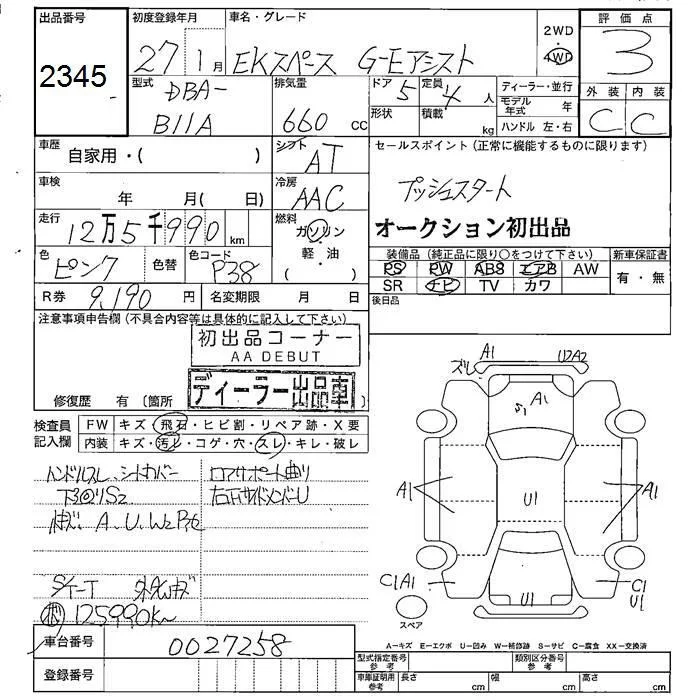 出品番号
2345
初度登録年月
27 1月
車名・グレード
EKスペース G-Eアシスト
2WD
4WD
評価点
3
型式
DBA-
B11A
排気量
660 CC
ドア 5
定員 4 人
形状
積載 kg
ディーラー・並行
モデル年式 年
ハンドル 左・右
外装 内装
C C
車歴
自家用・( )
シフト
AT
セールスポイント(正常に機能するものに限ります)
プッシュスタート
オークション初出品
車検
年 月( 日)
冷房
AAC
走行
12万5千990km
燃料
ガソリン
軽・油
( )
色
ピンク
色替
色コード
P38
装備品(純正品に限り○をつけて下さい)
PS PW ABS エアB AW
SR ナビ TV カワ
新車保証書
有・無
R券 9,190 円
名変期限 月 日
後日品
注意事項申告欄(不具合内容等は具体的に記入して下さい)
初出品コーナー
AA DEBUT
ディーラー出品車
修復歴 有 〔箇所 〕
検査員記入欄
FW キズ・飛石・ヒビ割・リペア跡・X要
内装 キズ・汚レ・コゲ・穴・スレ・キレ・破レ
ハンドルスレ シートカバー
下回りS2
A.U.W2
ロアサポート曲り
右F サイドメンバーU
125990K~
ズレ A1 U2A2
A1
A1 U1 A1
C1A1
U1
C1
U1
スペア
A-キズ E-エクボ U-凹み W-補修跡 S-サビ C-腐食 XX-交換済
車台番号
0027258
登録番号
型式指定番号 参考
類別区分番号 参考
車庫証明用参考 長さ cm 幅 cm 高さ cm